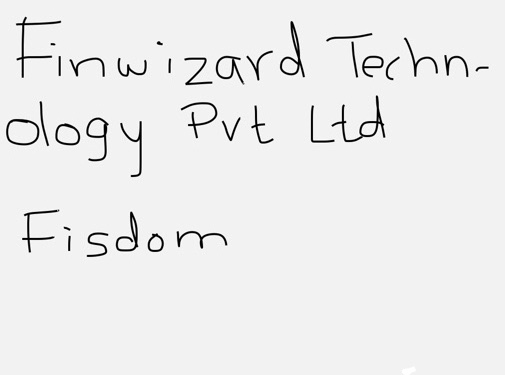 Finwizard Techn-
ology Pvt Ltd
Fisdom